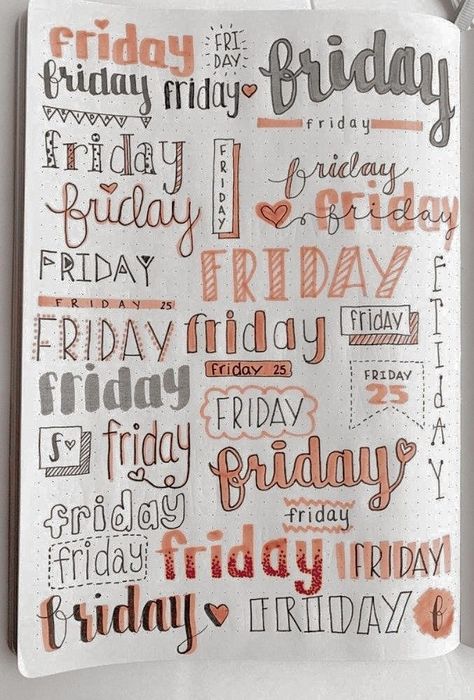 friday
FRI
DAY
friday
friday
friday
friday
friday
FRIDAY
friday
friday
friday
friday
FRIDAY
FRIDAY
FRIDAY 25
FRIDAY
friday
friday
friday
friday 25
FRIDAY
25
friday
FRIDAY
f
friday
friday
friday
friday
friday
friday
FRIDAY
friday
FRIDAY
f